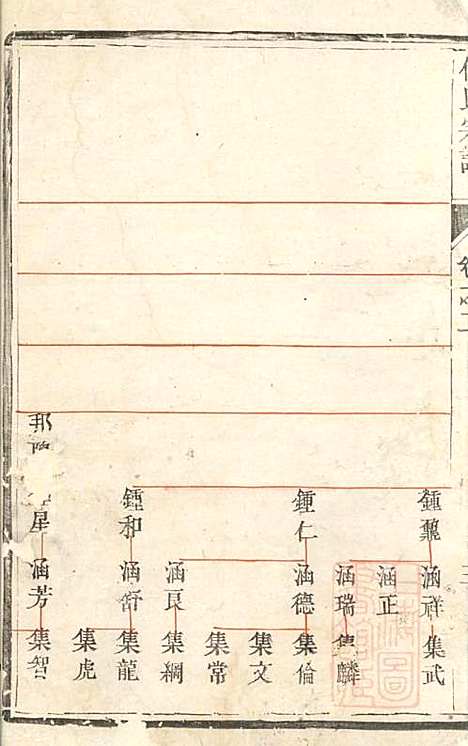 氏宗譜
卷之二
鍾飄
涵祥
集武
涵正
涵瑞
集麟
鍾仁
涵德
集倫
集文
集常
涵良
集綱
鍾和
涵舒
集龍
集虎
邦
星
涵芳
集智